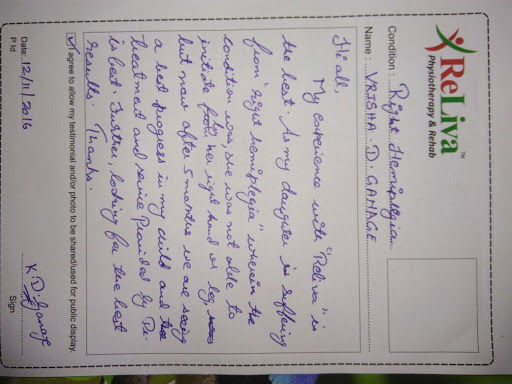 ReLiva™
Physiotherapy & Rehab
Condition: Right Hemiplegia
Name: VRISHA. D. GAHAGE
Hi all,
My experience with "Reliva" is
the best. As my daughter is suffering
from "right hemiplegia" wherein the
condition was, she was not able to
initiate from her right hand or leg
but now after 5 months we are seeing
a best progress in my child and
treatment and service Provided by Dr.
is best. Further, looking for the best
results. Thanks.
I agree to allow my testimonial and/or photo to be shared/used for public display.
Date: 12/11/2016
P Id
K.D.
Sign